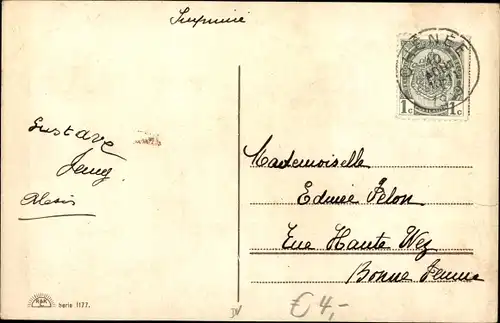 Imprimé
CHÊNÉE
10
1c 1c
Gustave
Jenny
Alexis
Mademoiselle
Edmée Pelon
Rue Haute Wez
Bonne Femme
serie 1177.
€ 4,-